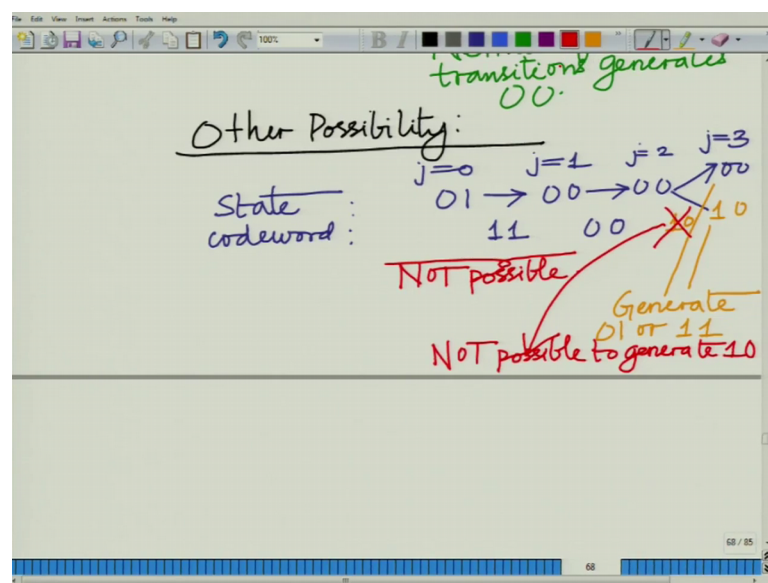 File Edit View Insert Actions Tools Help
100%
B I
transitions generates
00.
Other Possibility:
j=0 j=1 j=2 j=3
State : 01 → 00 → 00 00
10
codeword : 11 00 10
NOT possible
Generate
01 or 11
NOT possible to generate 10
68 / 85
68